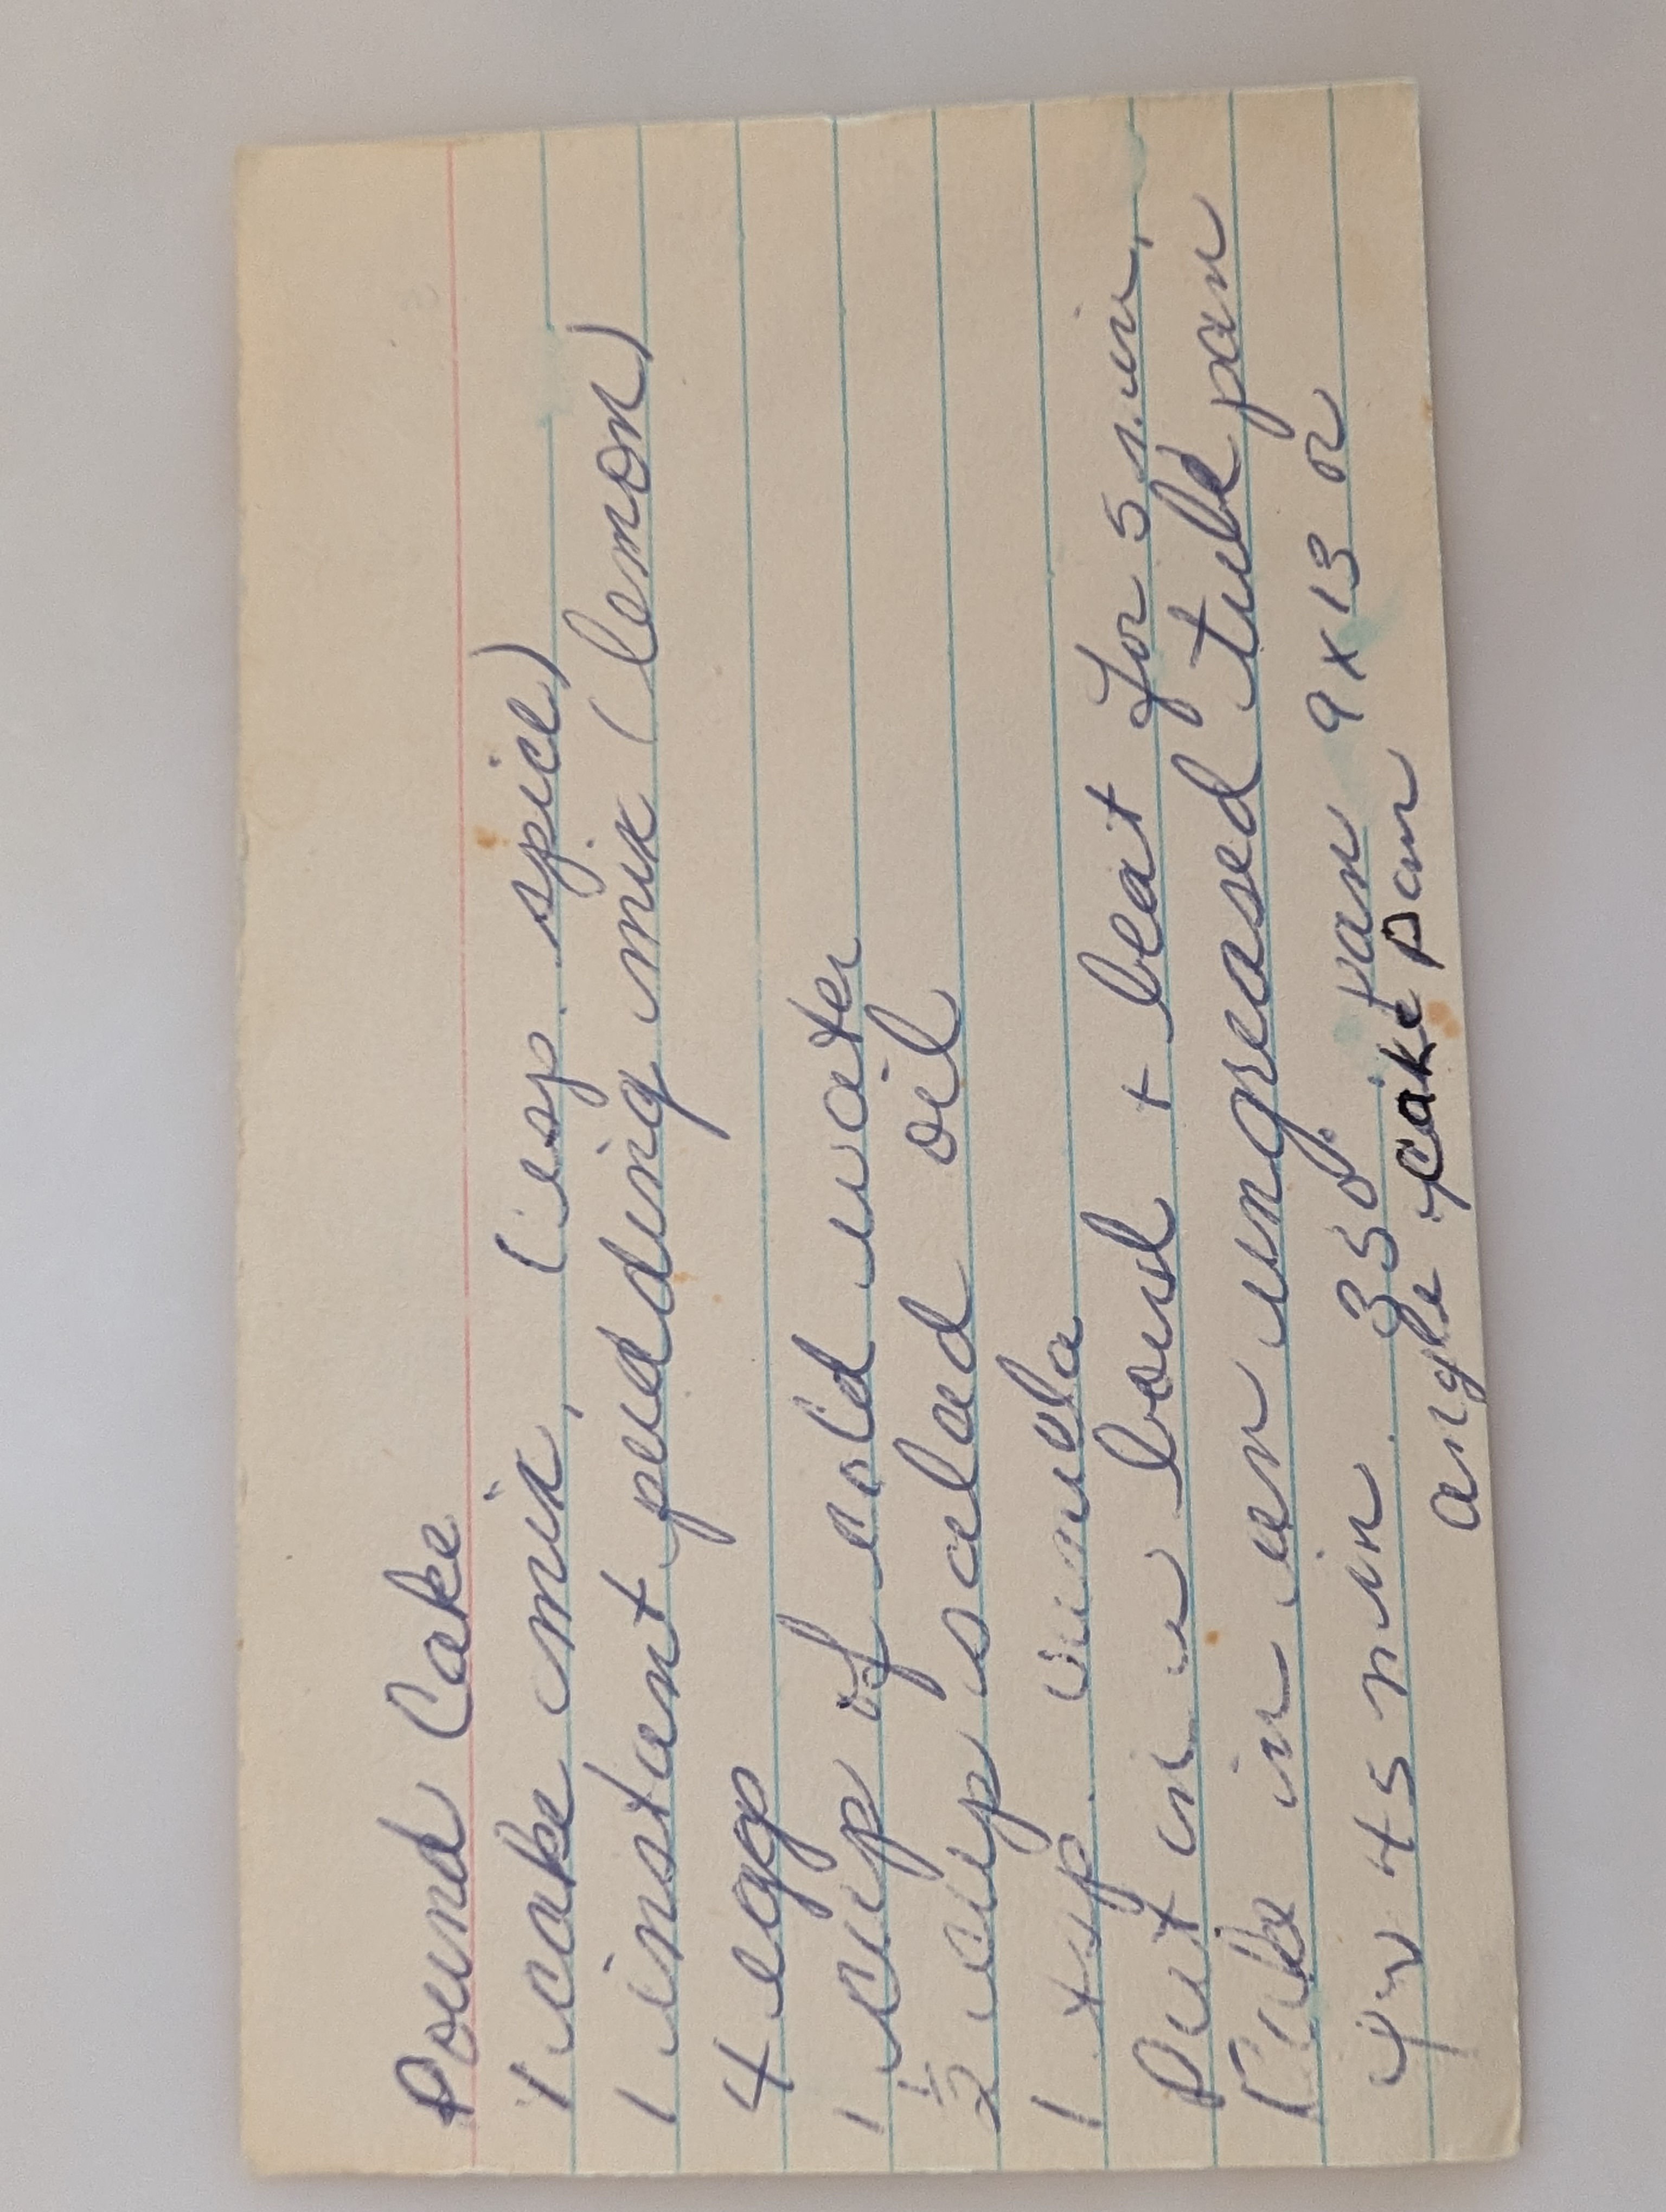 Pound Cake
1 cake mix, (esp. spice)
1 instant pudding mix (lemon)
4 egg
1 cup of cold water
1/2 cup salad oil
1 tsp. vinnela
Put in a bowl + beat for 5 min,
Bake in an ungreased tube pan
for 45 min. 350° pan 9 x 13 or
angle cake pan